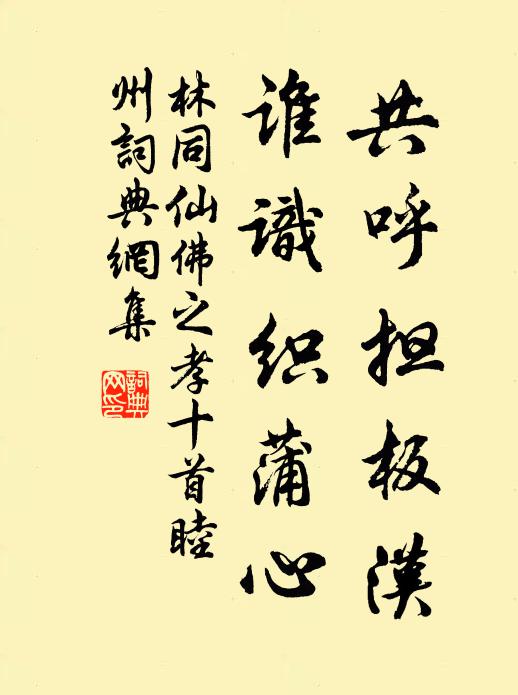 共呼担板漢
誰識织蒲心
林同仙佛之孝十首睦
州詞典網集
詞典
网印